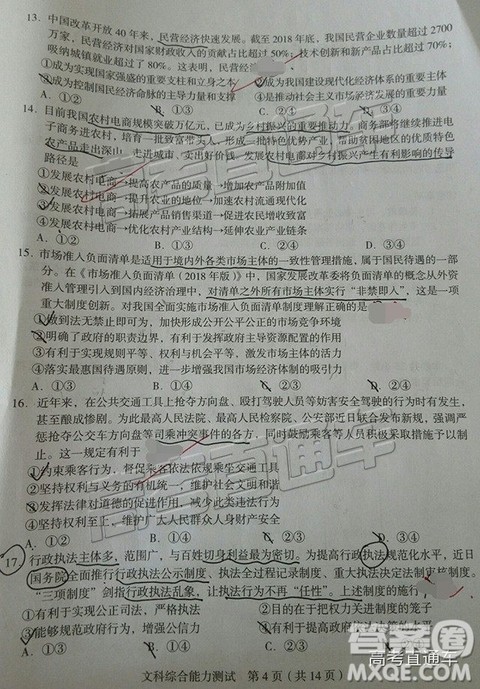 13. 中国改革开放 40 年来，民营经济快速发展。截至 2018 年底，我国民营企业数量超过 2700
万家，民营经济对国家财政收入的贡献占比超过 50%；技术创新和新产品占比超过 70%；
吸纳城镇就业超过了 80%。这表明，民营经
①成为实现国家强盛的重要支柱和立身之本 ②成为我国建设现代化经济体系的重要主体
③成为控制国民经济命脉的主导力量和支撑 ④是推动社会主义市场经济发展的重要力量
A．①② B．①③ C．②④ D．③④
14. 目前我国农村电商规模突破万亿元，已成为乡村振兴的重要推动力。商务部将继续推进电
子商务进农村，培育一批致富带头人，形成一批优势特色产业，帮助贫困地区的优质特色
农产品走出深山、走进城市、卖出好价钱。发展农村电商对乡村振兴产生有利影响的传导
路径是
①发展农村电商→提高农产品的质量→增加农产品附加值
②发展农村电商→提升农业的地位→加速农村城镇化
③发展农村电商→拓展产品销售渠道→促进农民增收致富
④发展农村电商→优化农村产业结构→延伸农业产业链条
A．①② B．①③ C．②④ D．③④
15. 市场准入负面清单是适用于境内外各类市场主体的一致性管理措施，属于国民待遇的一部
分。在《市场准入负面清单（2018 年版）》中，国家发展改革委将负面清单的概念从外资
准入管理引入到国内经济治理中，对清单之外所有市场主体实行“非禁即入”，这是一项
重大制度创新。对我国全面实施市场准入负面清单制度理解正确的是
①做到法无禁止即可为，加快形成公开公平公正的市场竞争环境
②明确了政府的职责边界，有利于发挥政府主导资源配置的作用
③有利于实现规则平等、权利平等、机会平等，激发市场主体活力
④落实最惠国待遇原则，进一步增强我国经济体制的吸引力
A．①② B．①③ C．②④ D．③④
16. 近年来，在公共交通工具上抢夺方向盘、殴打驾驶人员等妨害安全驾驶的行为时有发生，
甚至酿成惨剧。为此最高人民法院、最高人民检察院、公安部近日联合发布新规，强调严
惩抢夺公交车方向盘等司乘冲突事件的各方，同时鼓励乘客等人员积极采取措施予以制止。
这一规定有利于
①约束乘客行为，督促乘客依法依规乘坐交通工具
②坚持权利与义务的有机统一，维护社会文明和谐
③发挥法律对道德的促进作用，减少此类违法行为
④坚持权利与权力的统一，维护广大人民群众人身财产安全
A．①② B．①③ C．②④ D．③④
17. 行政执法主体多，范围广，与百姓切身利益最为密切。为提高行政执法规范化水平，近日
国务院全面推行行政执法公示制度、执法全过程记录制度、重大执法决定法制审核制度。
“三项制度”剑指行政执法乱象，让执法行为不再“任性”。上述制度的施行
①有利于实现公正司法，严格执法 ②有助于把权力关进制度的笼子
③能够规范政府行为，增强公信力 ④
A．①② B．①③ C．②③
文科综合能力测试 第 4 页（共 14 页）
高考直通车
答案圈
高考直通车